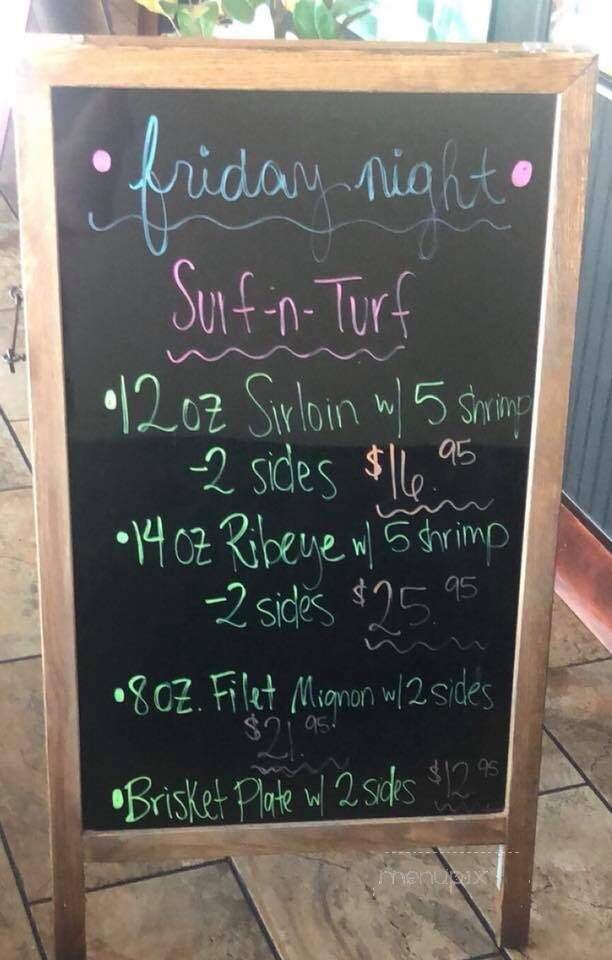 friday night
Surf-n-Turf
•12 oz Sirloin w/ 5 shrimp
-2 sides $16.95
•14 oz Ribeye w/ 5 shrimp
-2 sides $25.95
•8 oz. Filet Mignon w/ 2 sides
$21.95
•Brisket Plate w/ 2 sides $12.95
menupix